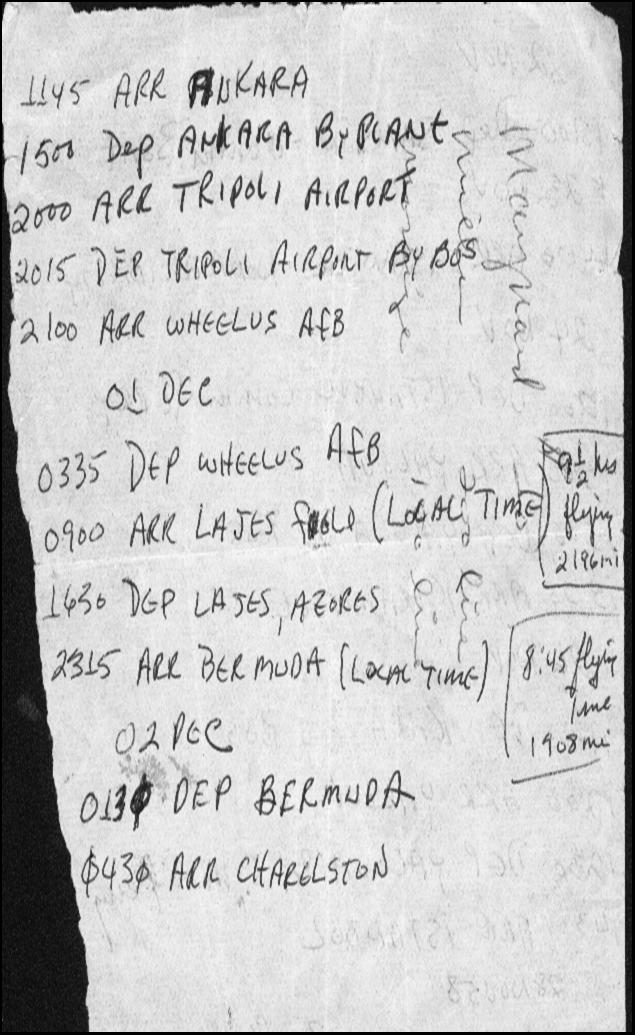 1145 ARR ANKARA
1500 Dep ANKARA By PLANE
2000 ARR TRIPOLI AIRPORT
2015 DEP TRIPOLI AIRPORT By BUS
2100 ARR WHEELUS AFB
01 DEC
0335 DEP WHEELUS AFB
0900 ARR LAJES FIELD (LOCAL TIME)
9 1/2 hrs
flying
2196 mi
1630 DEP LAJES, AZORES
2315 ARR BERMUDA (LOCAL TIME)
8:45 flying
Time
1908 mi
02 DEC
0130 DEP BERMUDA
0430 ARR CHARELSTON